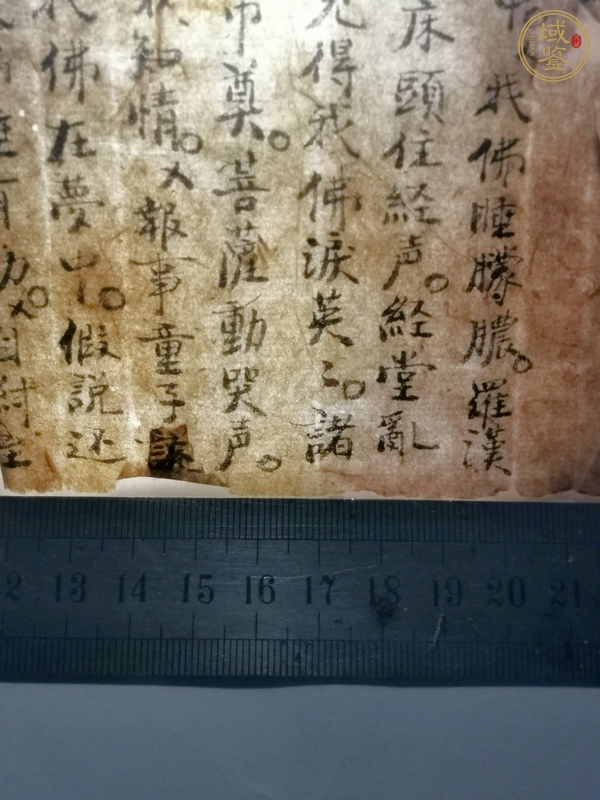 我佛睡朦朧。羅漢
床頭住経声。経堂亂
見得我佛淚英〻。諸
巾奠。菩薩動哭声。
知情。又報事童子
我佛在夢中。假說还
自討
12 13 14 15 16 17 18 19 20 21
域鉴